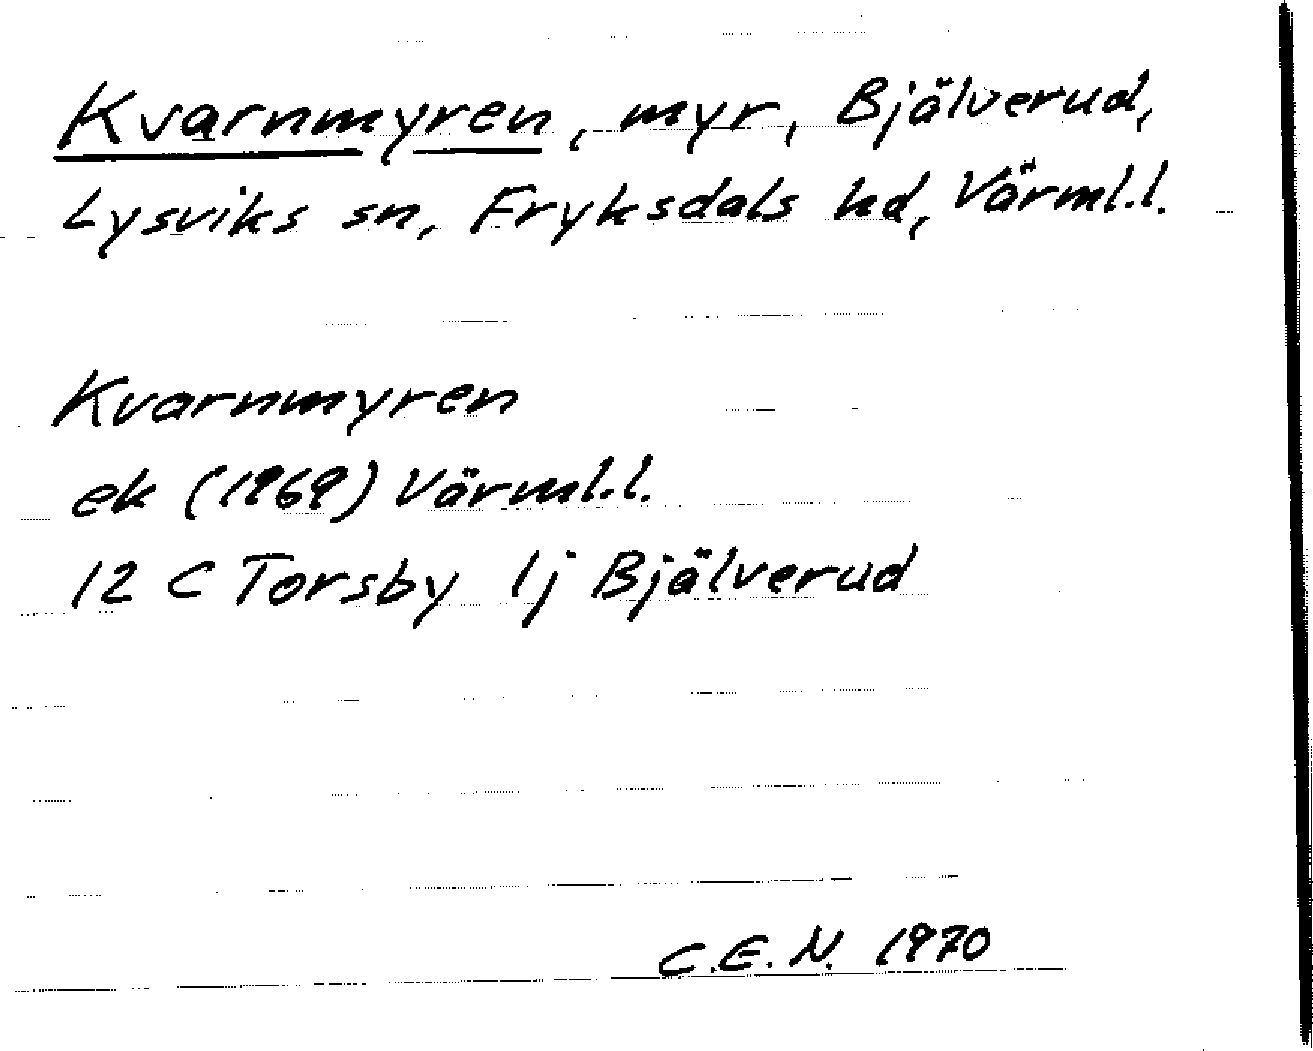 Kvarnmyren, myr, Bjälverud,
Lysviks sn, Fryksdals hd, Värml.l.
Kvarnmyren
ek (1969) Värml.l.
12 C Torsby 1j Bjälverud
C.E.N. 1970